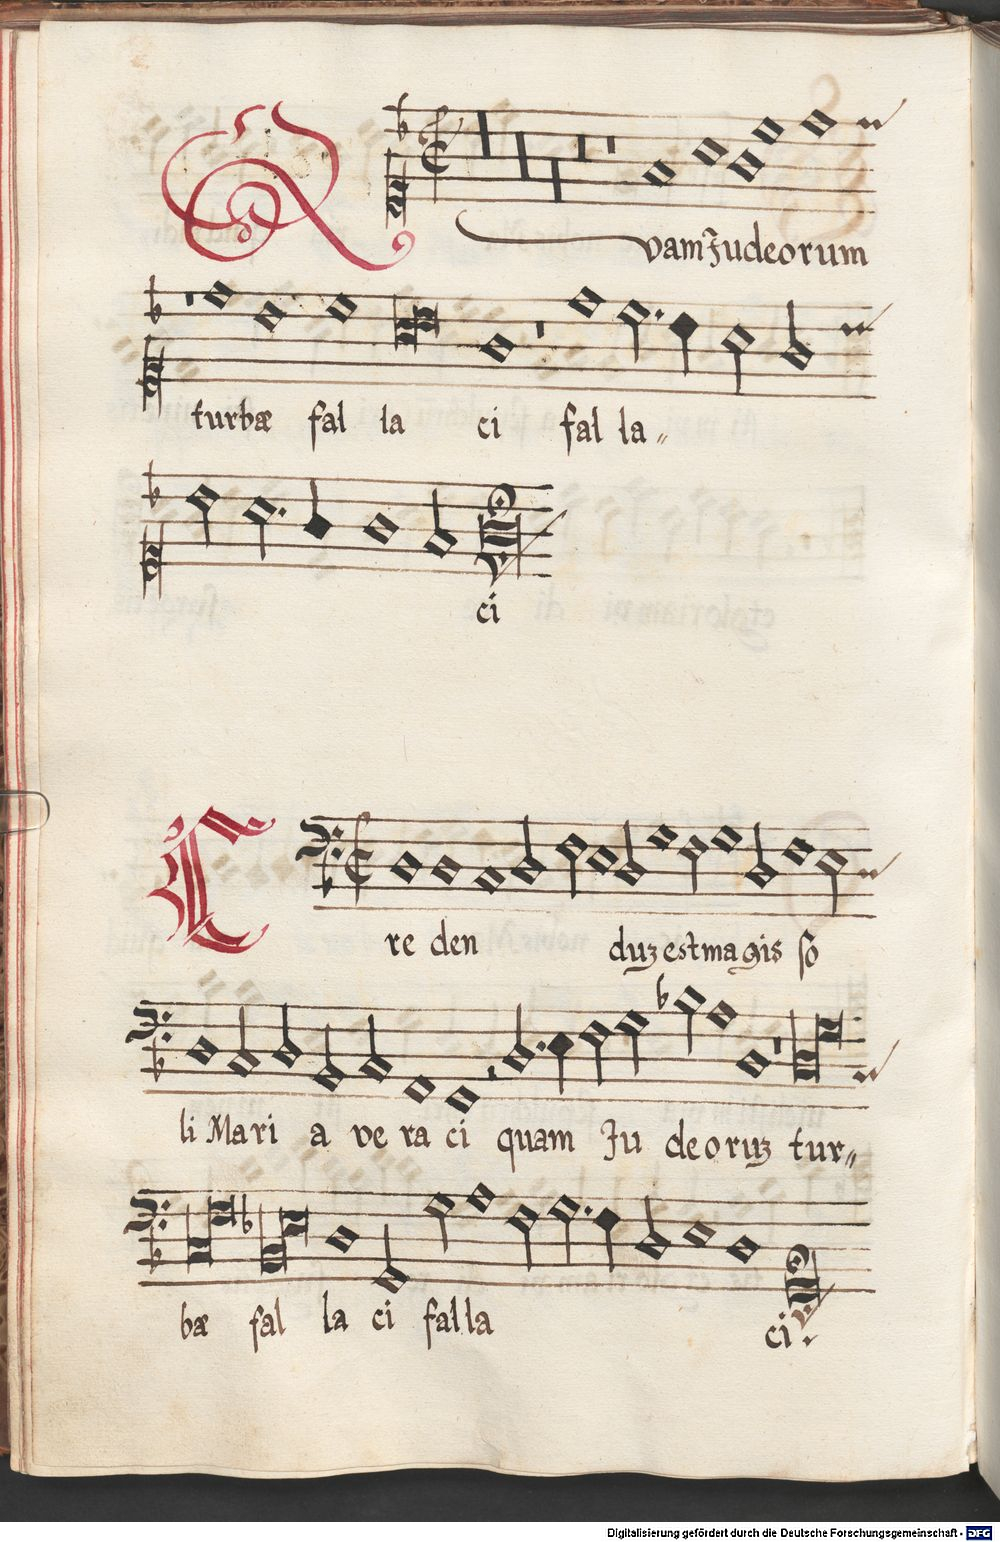 Qvam Judeorum
turbæ fal la ci fal la〃
ci
Cre den duz est magis so
li Mari a ve ra ci quam Ju deoruz tur〃
bæ fal la ci falla ci.
Digitalisierung gefördert durch die Deutsche Forschungsgemeinschaft - DFG